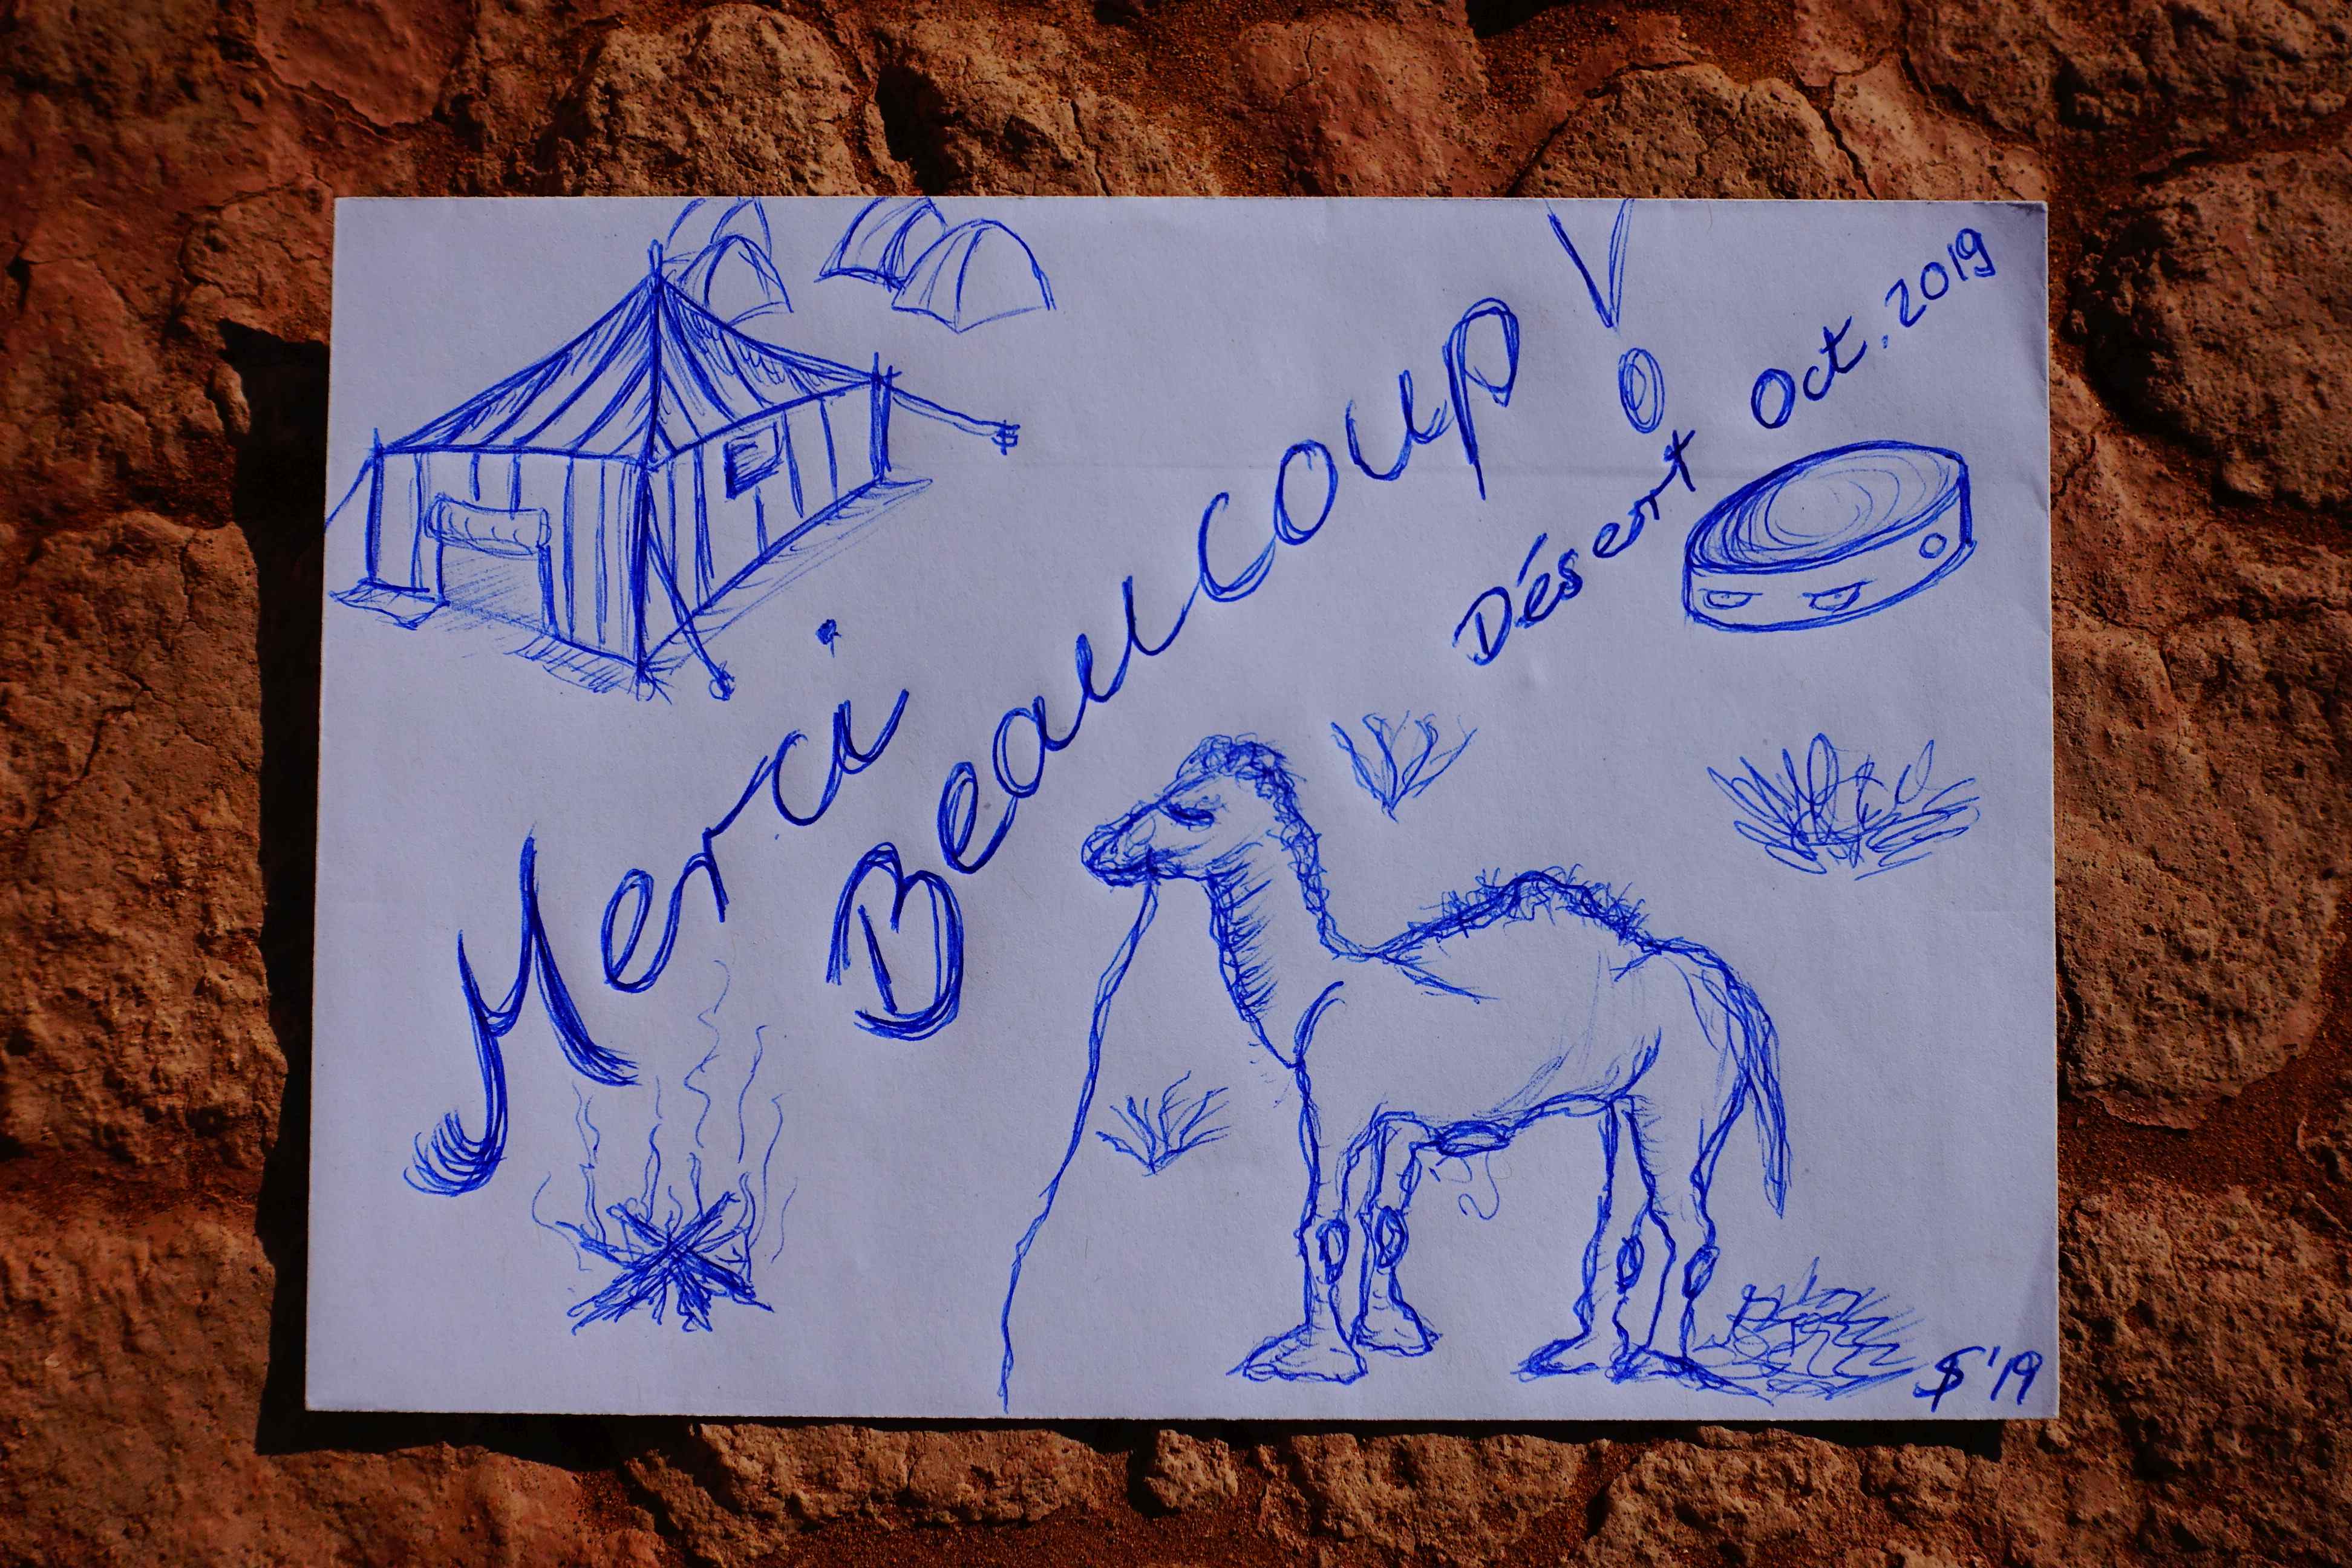 Merci
Beaucoup !
Désert Oct. 2019
S'19